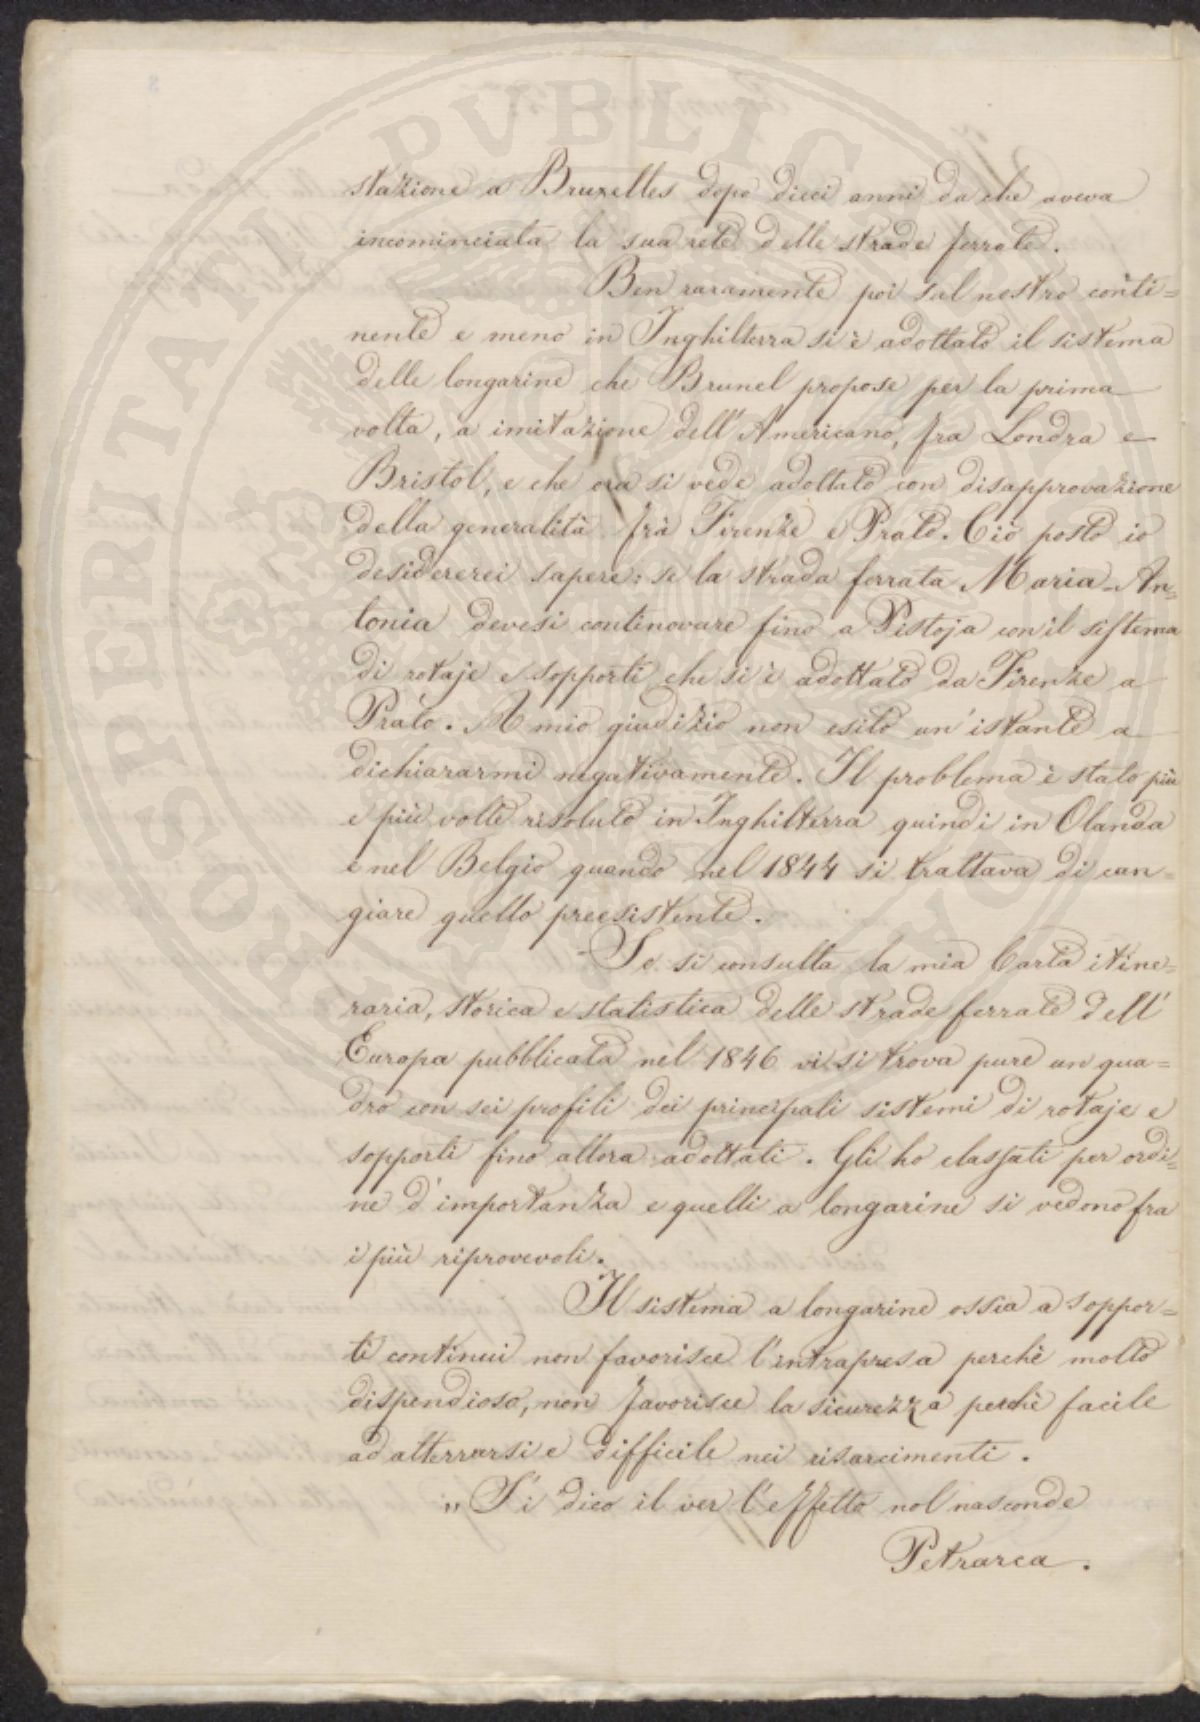 stazione a Bruxelles dopo dieci anni da che aveva
incominciata la sua rete delle strade ferrate.
Ben raramente poi sul nostro conti=
nente e meno in Inghilterra si è adottato il sistema
delle longarine che Brunel propose per la prima
volta, a imitazione dell'Americano, fra Londra e
Bristol, e che ora si vede adottato con disapprovazione
della generalità frà Firenze e Prato. Ciò posto io
desidererei sapere: se la strada ferrata Maria-An=
tonia devesi continovare fino a Pistoja con il sistema
di rotaje e sopporti che si è adottato da Firenze a
Prato. A mio giudizio non esito un'istante a
dichiararmi negativamente. Il problema è stato più
e più volte risoluto in Inghilterra quindi in Olanda
e nel Belgio quando nel 1844 si trattava di can=
giare quello preesistente.
Se si consulta la mia Carta itine=
raria, storica e statistica delle strade ferrate dell'
Europa pubblicata nel 1846 vi si trova pure un qua=
dro con sei profili dei principali sistemi di rotaje e
sopporti fino allora adottati. Gli ho classati per ordi=
ne d'importanza e quelli a longarine si vedono fra
i più riprovevoli.
Il sistema a longarine ossia a soppor=
ti continui non favorisce l'intrapresa perchè molto
dispendioso, non favorisce la sicurezza perchè facile
ad atterrarsi e difficile nei risarcimenti.
„ S'i dico il ver l'effetto nol nasconde
Petrarca.
PROSPERITATI PVBLICAE